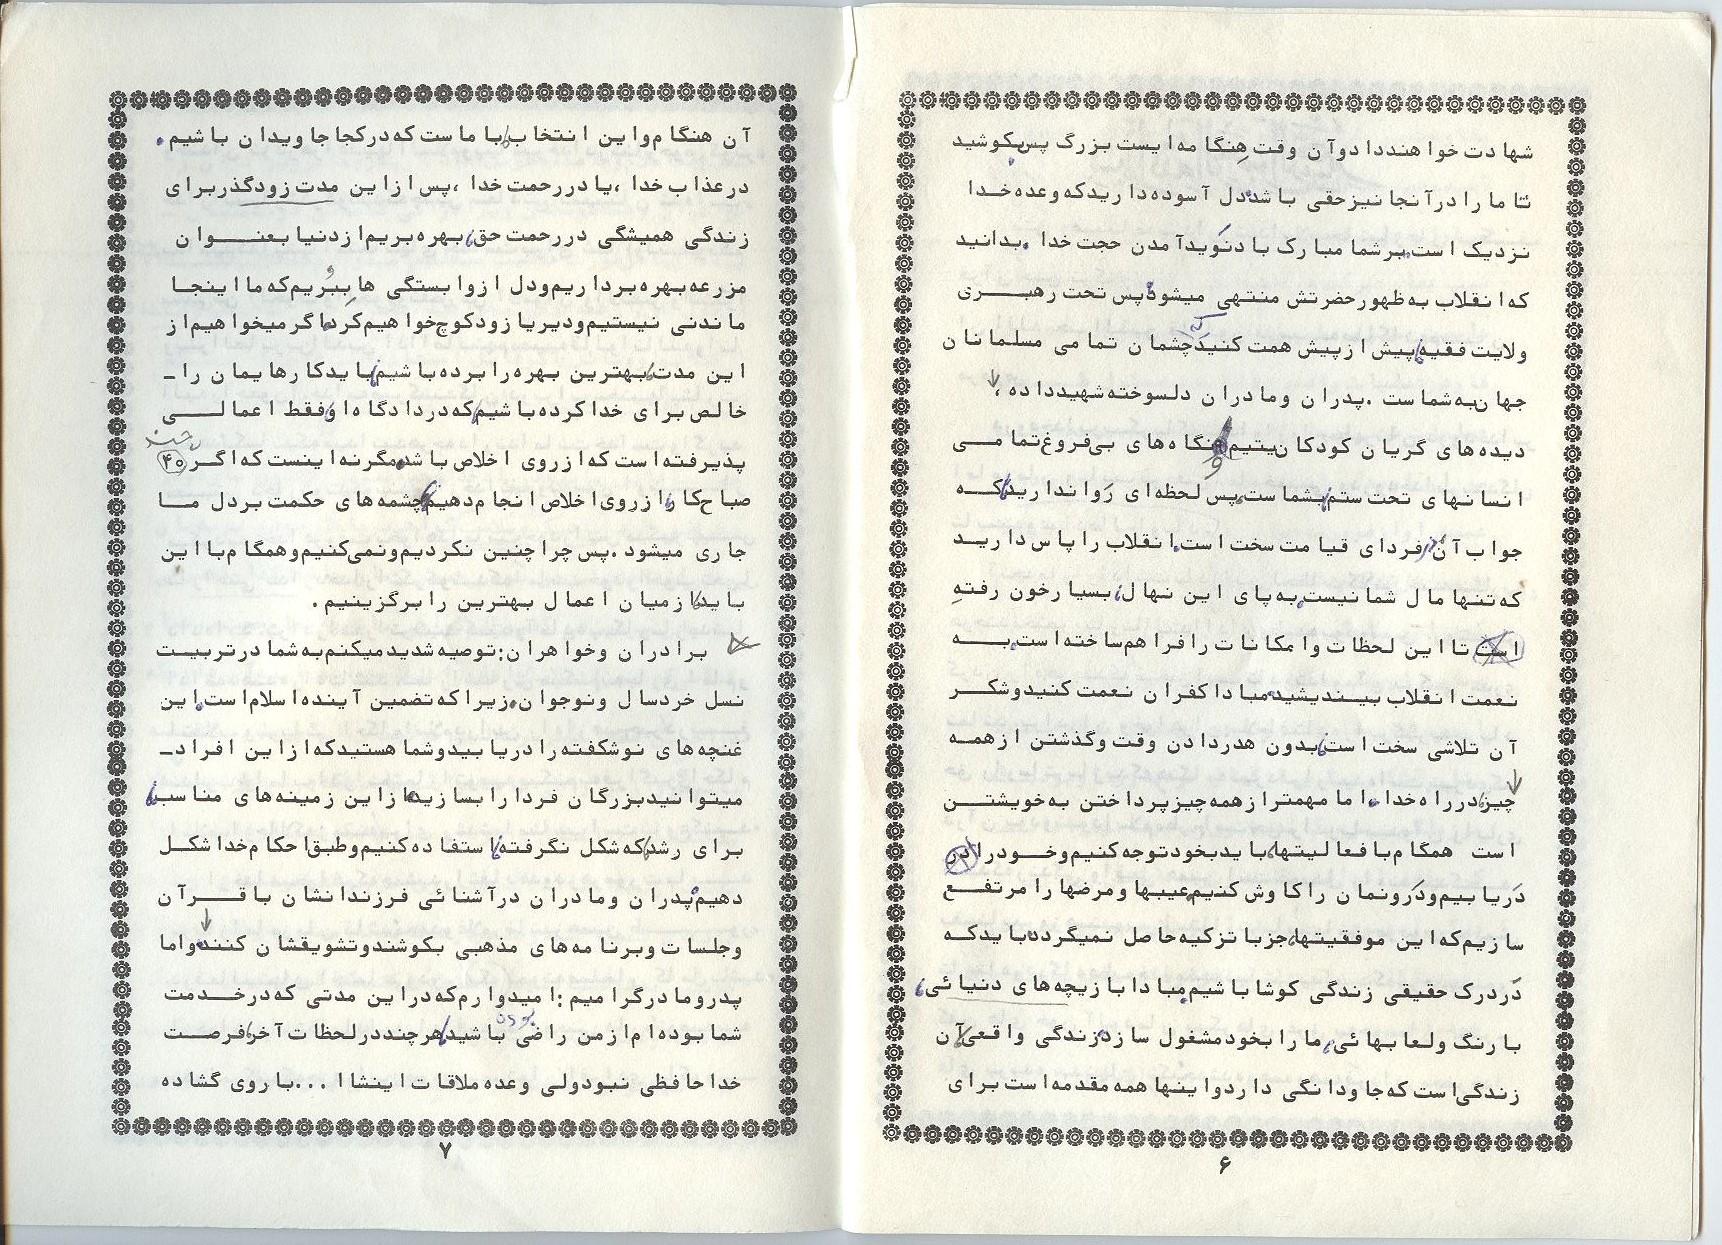 شهادت خواهند داد و آن وقت هنگامه ایست بزرگ پس بکوشید
تا ما را در آنجا نیز حقی باشد. دل آسوده دارید که وعده خدا
نزدیک است. بر شما مبارک باد نوید آمدن حجت خدا. بدانید
که انقلاب به ظهور حضرتش منتهی میشود پس تحت رهبری
ولایت فقیه، پیش از پیش همت کنید که چشمان تمامی مسلمانان
جهان به شماست. پدران و مادران دلسوخته شهید داده،
دیده های گریان کودکان یتیم و نگاه های بی فروغ تمامی
انسانهای تحت ستم، بشماست. پس لحظه ای روا ندارید که
جواب آن در فردای قیامت سخت است. انقلاب را پاس دارید
که تنها مال شما نیست. به پای این نهال، بسیار خون رفته
است تا این لحظات و امکانات را فراهم ساخته است. به
نعمت انقلاب بیندیشید. مبادا کفران نعمت کنید و شکر
آن تلاشی سخت است، بدون هدر دادن وقت و گذشتن از همه
چیز، در راه خدا. اما مهمتر از همه چیز پرداختن به خویشتن
است همگام با فعالیتها، باید بخود توجه کنیم و خود را در
دریابیم و درونمان را کاوش کنیم، عیبها و مرضها را مرتفع
سازیم که این موفقیتها، جز با تزکیه حاصل نمیگردد. باید که
در درک حقیقی زندگی کوشا باشیم. مبادا بازیچه های دنیائی،
با رنگ و لعابهائی، ما را بخود مشغول سازد. زندگی واقعی آن
زندگی است که جاودانگی دارد و اینها همه مقدمه است برای
۶
آن هنگام و این انتخاب، با ماست که در کجا جاویدان باشیم.
در عذاب خدا، یا در رحمت خدا، پس از این مدت زودگذر برای
زندگی همیشگی در رحمت حق، بهره بریم از دنیا بعنوان
مزرعه بهره برداریم و دل از وابستگی ها ببریم که ما اینجا
ماندنی نیستیم و دیر یا زود کوچ خواهیم کرد. اگر میخواهیم از
این مدت، بهترین بهره را برده باشیم، باید کارهایمان را ـ
خالص برای خدا کرده باشیم، که در دادگاه او، فقط اعمالی
پذیرفته است که از روی اخلاص باشد. مگر نه اینست که اگر ۴۰
صباح کار را از روی اخلاص انجام دهیم، چشمه های حکمت بر دل ما
جاری میشود. پس چرا چنین نکردیم و نمی کنیم و همگام با این
باید، از میان اعمال بهترین را برگزینیم.
برادران و خواهران: توصیه شدید میکنم به شما در تربیت
نسل خردسال و نوجوان. زیرا که تضمین آینده اسلام است. این
غنچه های نوشکفته را دریابید و شما هستید که از این افراد ـ
میتوانید بزرگان فردا را بسازید. از این زمینه های مناسب،
برای رشد، که شکل نگرفته، استفاده کنیم و طبق احکام خدا شکل
دهیم. پدران و مادران در آشنائی فرزندانشان با قرآن
و جلسات و برنامه های مذهبی بکوشند و تشویقشان کنند. و اما
پدر و مادر گرامیم: امیدوارم که در این مدتی که در خدمت
شما بوده ام از من راضی بوده باشید، هر چند در لحظات آخر، فرصت
خداحافظی نبود ولی وعده ملاقات اینشاا... با روی گشاده
۷